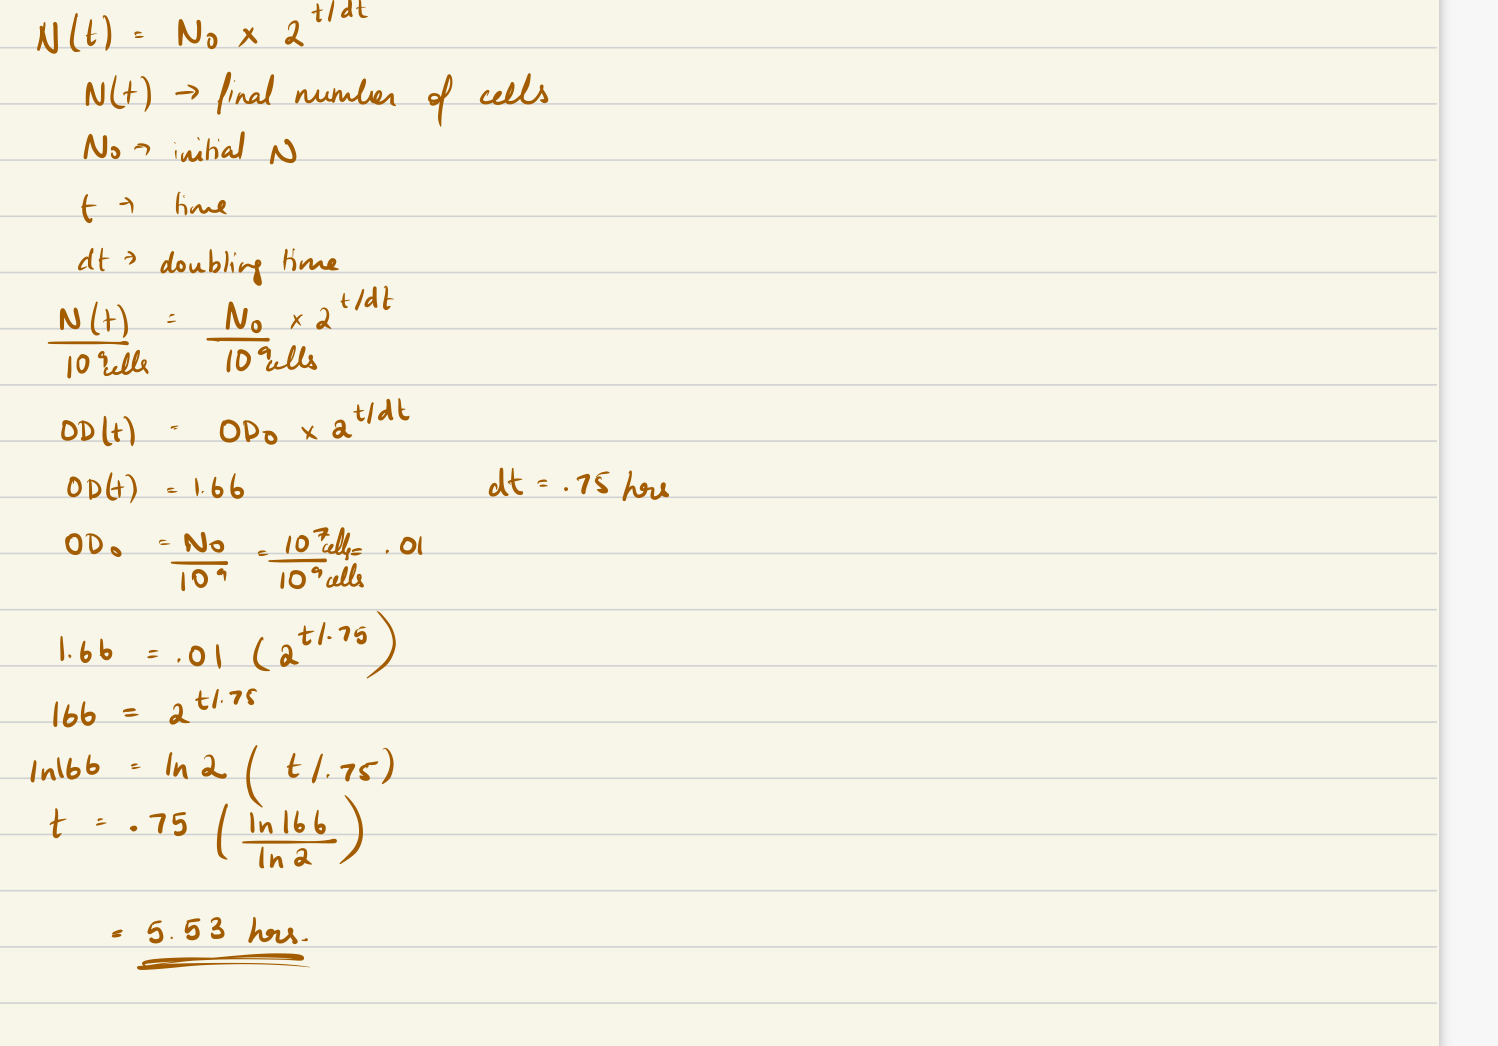 N(t) = N₀ × 2^(t/dt)
N(t) → final number of cells
N₀ → initial N
t → time
dt → doubling time
N(t)/10⁹ cells = N₀/10⁹ cells × 2^(t/dt)
OD(t) = OD₀ × 2^(t/dt)
OD(t) = 1.66 dt = .75 hrs
OD₀ = N₀/10⁹ = 10⁷ cells/10⁹ cells = .01
1.66 = .01 (2^(t/.75))
166 = 2^(t/.75)
ln166 = ln 2 (t/.75)
t = .75 (ln 166/ln 2)
= 5.53 hrs.